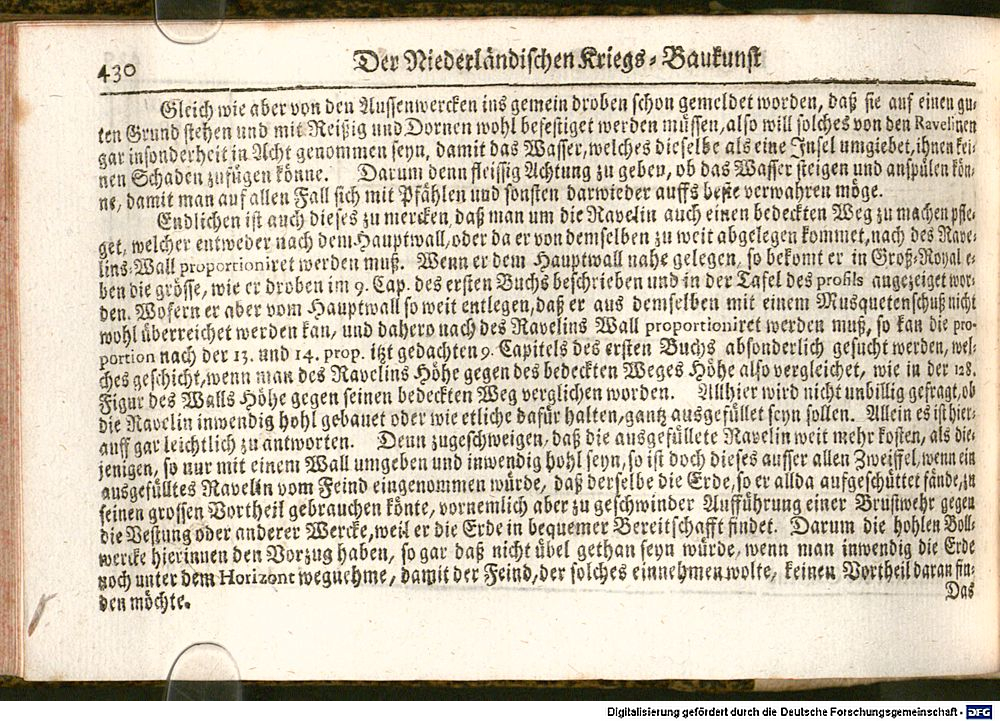 430
Der Niederländischen Kriegs-Baukunst
Gleich wie aber von den Aussenwercken ins gemein droben schon gemeldet worden, daß sie auf einen gu-
ten Grund stehen und mit Reißig und Dornen wohl befestiget werden müssen, also will solches von den Ravelinen
gar insonderheit in Acht genommen seyn, damit das Wasser, welches dieselbe als eine Insel umgiebet, ihnen kei-
nen Schaden zufügen könne. Darum denn fleissig Achtung zu geben, ob das Wasser steigen und anspülen kön-
ne, damit man auf allen Fall sich mit Pfählen und sonsten darwieder auffs beste verwahren möge.
Endlichen ist auch dieses zu mercken, daß man um die Ravelin auch einen bedeckten Weg zu machen pfle-
get, welcher entweder nach dem Hauptwall, oder da er von demselben zu weit abgelegen kommet, nach des Rave-
lins-Wall proportioniret werden muß. Wenn er dem Hauptwall nahe gelegen, so bekomt er in Groß-Royal e-
ben die grösse, wie er droben im 9. Cap. des ersten Buchs beschrieben und in der Tafel des profils angezeiget wor-
den. Wofern er aber vom Hauptwall so weit entlegen, daß er aus demselben mit einem Musquetenschuß nicht
wohl überreichet werden kan, und dahero nach des Ravelins Wall proportioniret werden muß, so kan die pro-
portion nach der 13. und 14. prop. itzt gedachten 9. Capitels des ersten Buchs absonderlich gesucht werden, wel-
ches geschicht, wenn man des Ravelins Höhe gegen des bedeckten Weges Höhe also vergleichet, wie in der 128.
Figur des Walls Höhe gegen seinen bedeckten Weg verglichen worden. Allhier wird nicht unbillig gefragt, ob
die Ravelin inwendig hohl gebauet oder wie etliche dafür halten, gantz ausgefüllet seyn sollen. Allein es ist hier-
auff gar leichtlich zu antworten. Denn zugeschweigen, daß die ausgefüllete Ravelin weit mehr kosten, als die-
jenigen, so nur mit einem Wall umgeben und inwendig hohl seyn, so ist doch dieses ausser allen Zweiffel, wenn ein
ausgefülltes Ravelin vom Feind eingenommen würde, daß derselbe die Erde, so er allda aufgeschüttet fände, zu
seinen grossen Vortheil gebrauchen könte, vornemlich aber zu geschwinder Aufführung einer Brustwehr gegen
die Vestung oder anderer Wercke, weil er die Erde in bequemer Bereitschafft findet. Darum die hohlen Boll-
wercke hierinnen den Vorzug haben, so gar daß nicht übel gethan seyn würde, wenn man inwendig die Erde
noch unter dem Horizont wegnehme, damit der Feind, der solches einnehmen wolte, keinen Vortheil daran fin-
den möchte.
Das
Digitalisierung gefördert durch die Deutsche Forschungsgemeinschaft - DFG